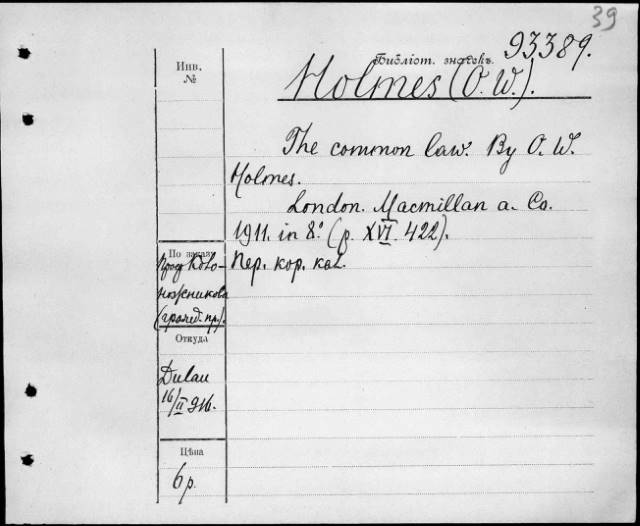 39
93389.
Библіот. значекъ.
Инв.
№
Holmes (O. W.).
The common law. By O. W.
Holmes.
London. Macmillan a. Co.
1911. in 8º. (p. XVI. 422).
По заказу
Проф.
Пер. кор. кол.
(гражд. пр.).
Откуда
Dulau
16/II 916.
Цѣна
6 р.